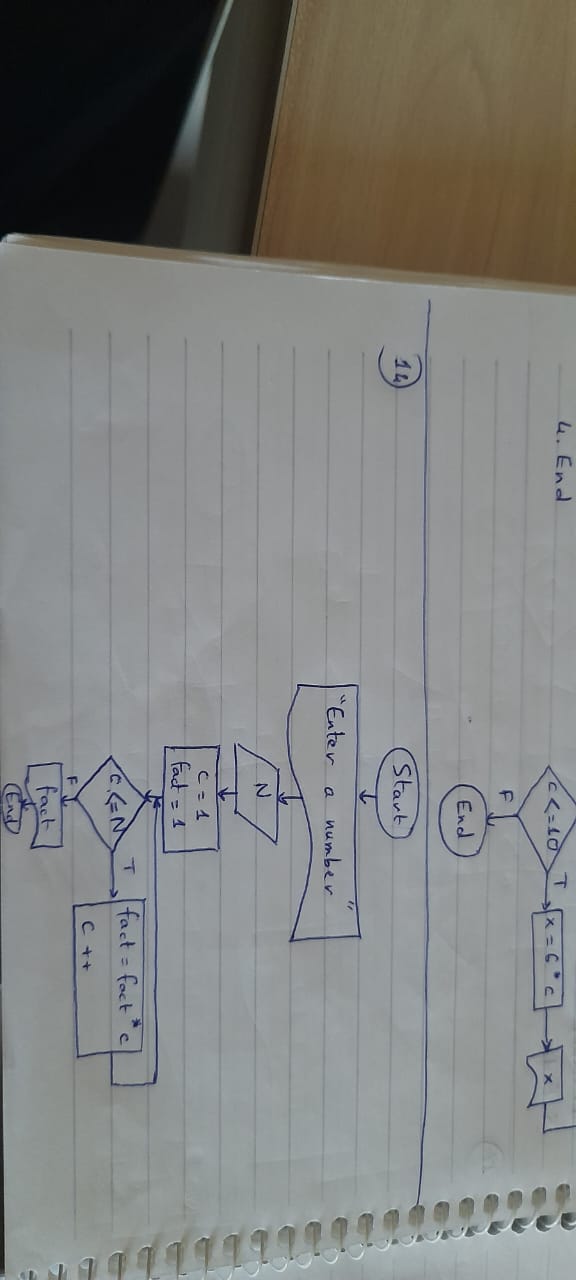 4. End
c <= 10
T
x = 6 * c
x
F
End
14
Start
"Enter a number"
N
c = 1
fact = 1
c <= N
T
fact = fact * c
c ++
F
fact
End